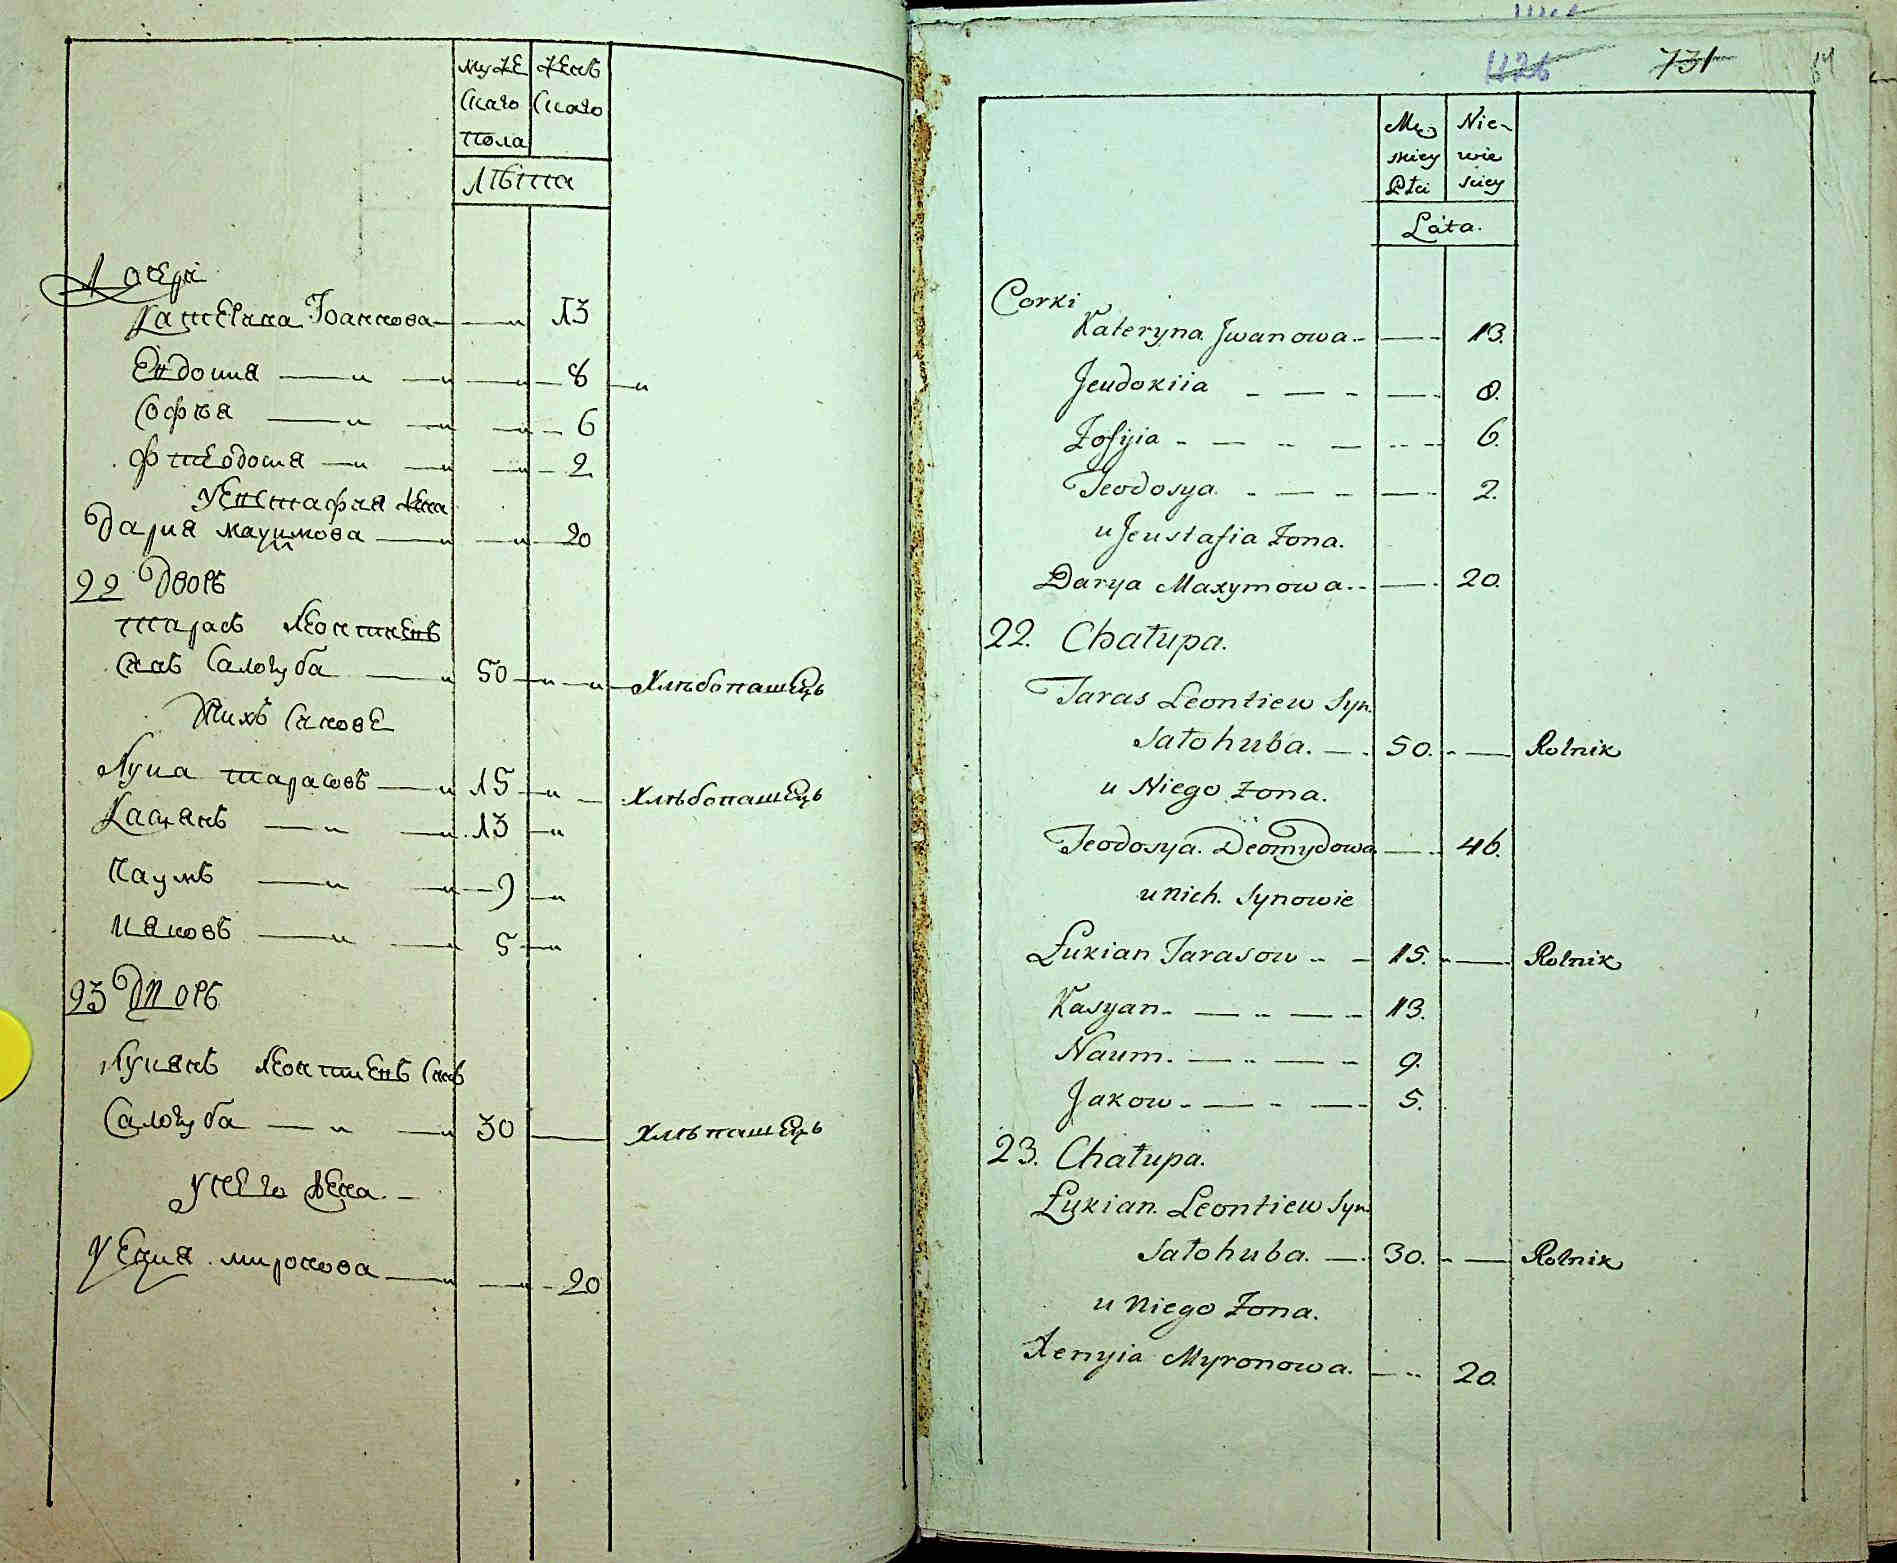 муже женъ
скаго скаго
пола
лѣта
дочери
Катерина Іоаннова 13
Евдокия 8
Софья 6
Фтеодосия 2
У Евстафия жена
Дария Маѯимова 20
22 Дворъ
Тарасъ Леонтиевъ
снъ Салогуба 50 хлѣбопашецъ
У них снове
Лука Тарасовъ 15 хлѣбопашецъ
Касиянъ 13
Наумъ 9
Иаковъ 5
23 Дворъ
Лукиянъ Леонтиевъ снъ
Салогуба 30 хлѣпашецъ
у него жена
Ѯения Миронова 20
1126 731 64
Mę Nie-
skiey wie
Płci skiey
Lata.
Corki
Kateryna Jwanowa 13.
Jeudokiia 8.
Zofyia 6.
Teodosya 2.
u Jeustafia Zona.
Darya Maxymowa 20.
22. Chałupa.
Taras Leontiew Syn
Sałohuba. 50. Rolnik
u Niego Zona.
Teodosya Deomydowa 46.
u nich Synowie
Łukian Tarasow 15. Rolnik
Kasyan 13.
Naum. 9.
Jakow 5.
23. Chałupa.
Łukian Leontiew Syn
Sałohuba. 30. Rolnik
u Niego Zona.
Xenyia Myronowa. 20.